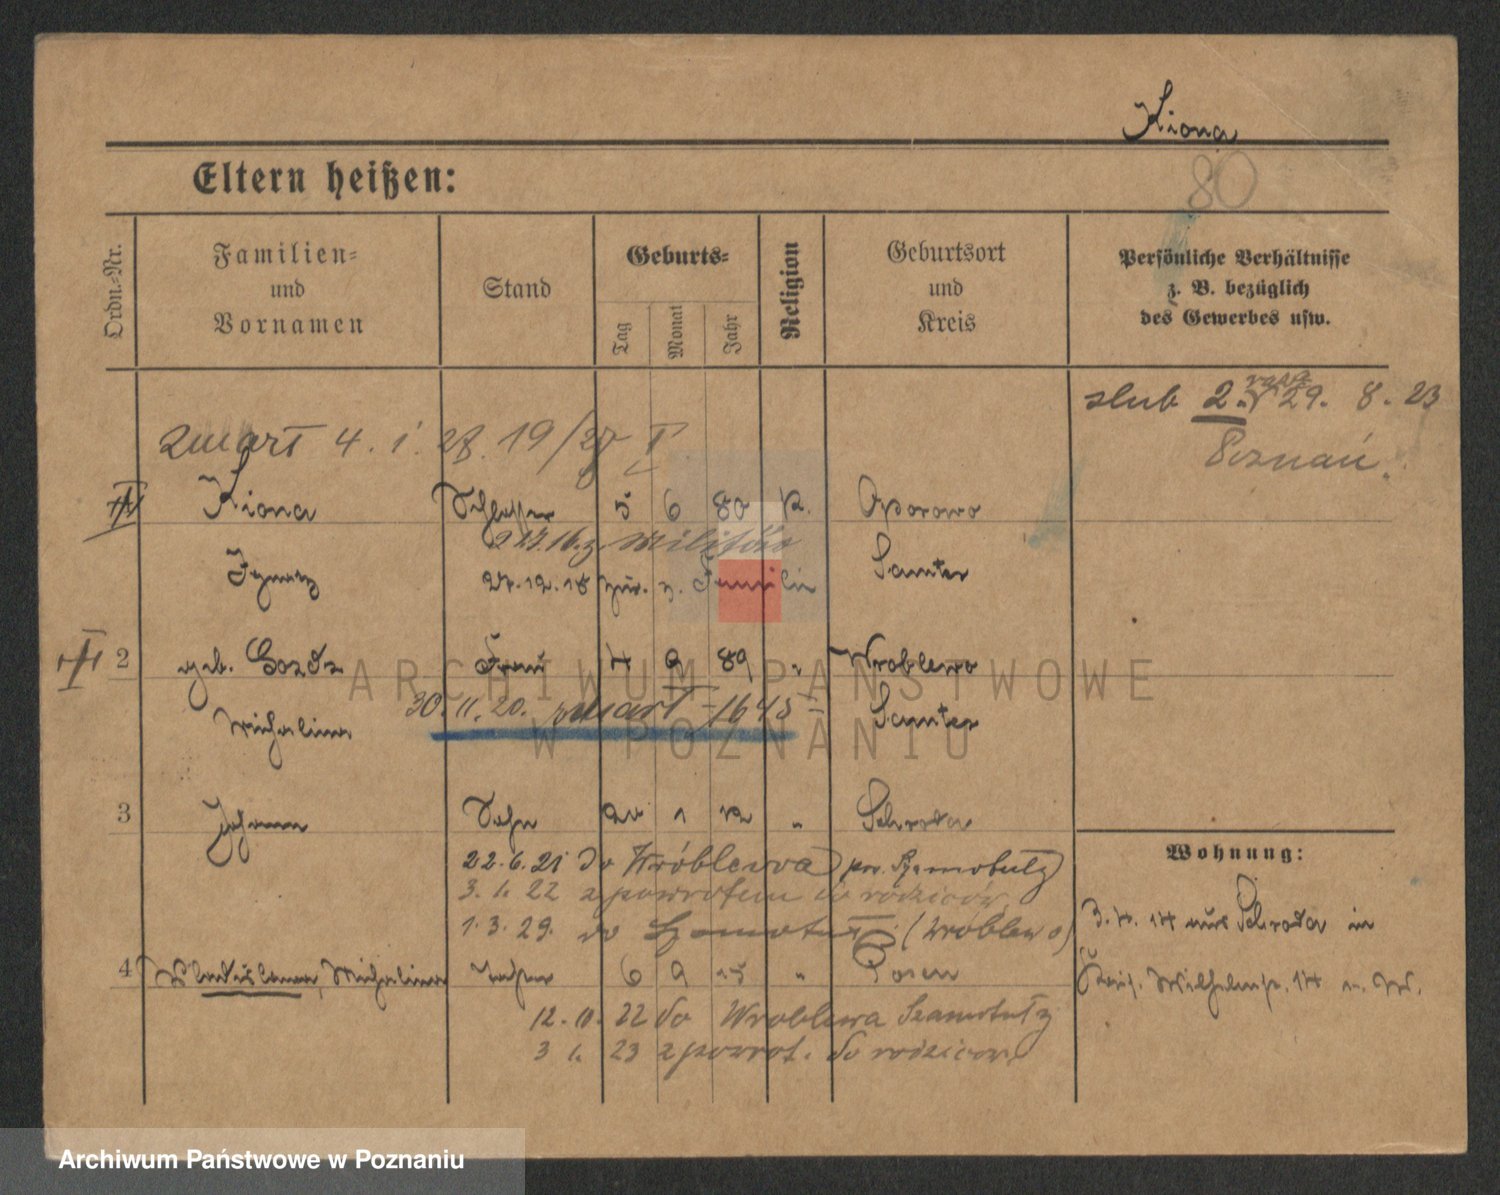 Kiona
80
Eltern heißen:
Ordn.-Nr.
Familien-
und
Vornamen
Stand
Geburts-
Tag
Monat
Jahr
Religion
Geburtsort
und
Kreis
Persönliche Verhältnisse
z. B. bezüglich
des Gewerbes usw.
slub 2. 29. 8. 23
Poznań
zmarł 4. 1. 28. 19/28 I
Kiona Schlosser 5 6 80 k. Oporowo
16. z. Militär
Ignatz 27. 12. 18 zur. z. Familie Samter
2 geb. Gozdz Frau 4 9 89 " Wroblewo
30. 11. 20. zmarł 1645
Michalina Samter
3 Johann Sohn 20 1 12 " Schroda
22. 6. 21 do Wróblewa pow. Szamotuły
3. 1. 22 z powrotem do rodziców
1. 3. 29. do Szamotuł (Wróblewo)
4 Wladislawa, Michalina Tochter 6 9 15 " Posen
12. 10. 22 do Wroblewa Szamotuły
3 1. 23 z powrot. do rodziców
Wohnung:
3. 4. 14 aus Schroda in
Wilhelmstr. 14
ARCHIWUM PAŃSTWOWE
W POZNANIU
Archiwum Państwowe w Poznaniu